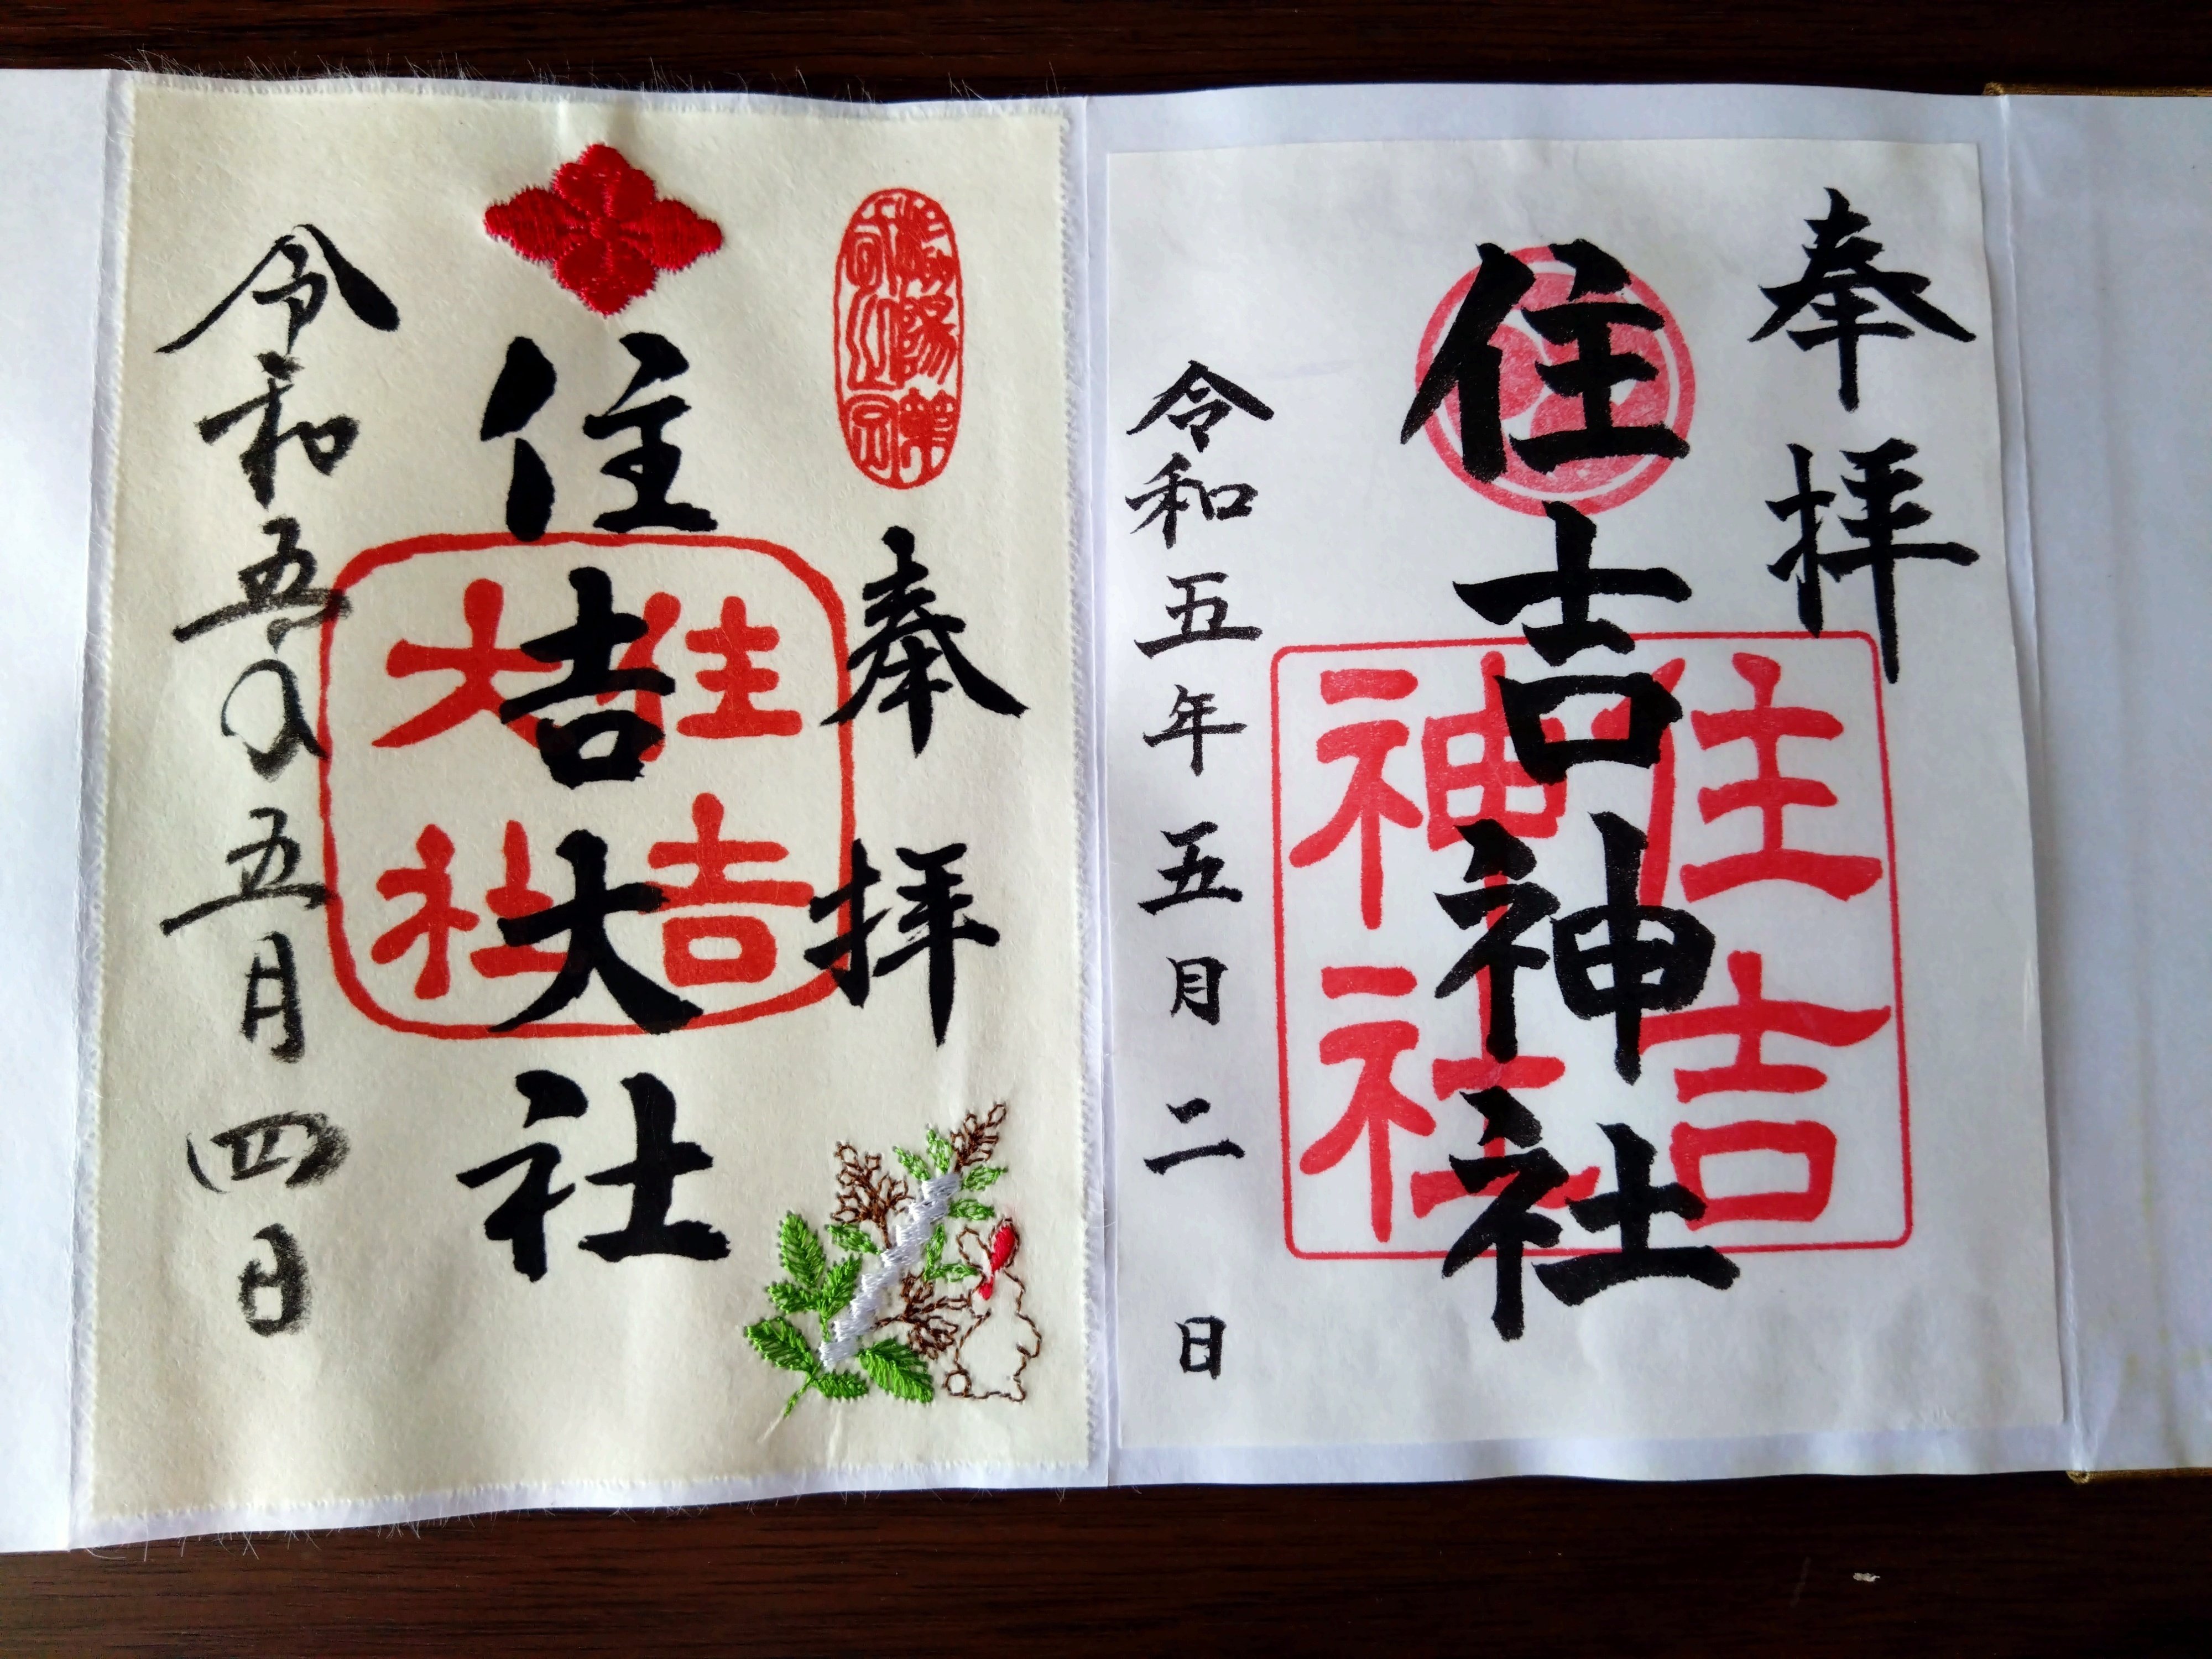 奉拝
住吉神社
住吉
神社
令和五年五月二日
奉拝
住吉大社
住吉
大社
令和五年五月四日